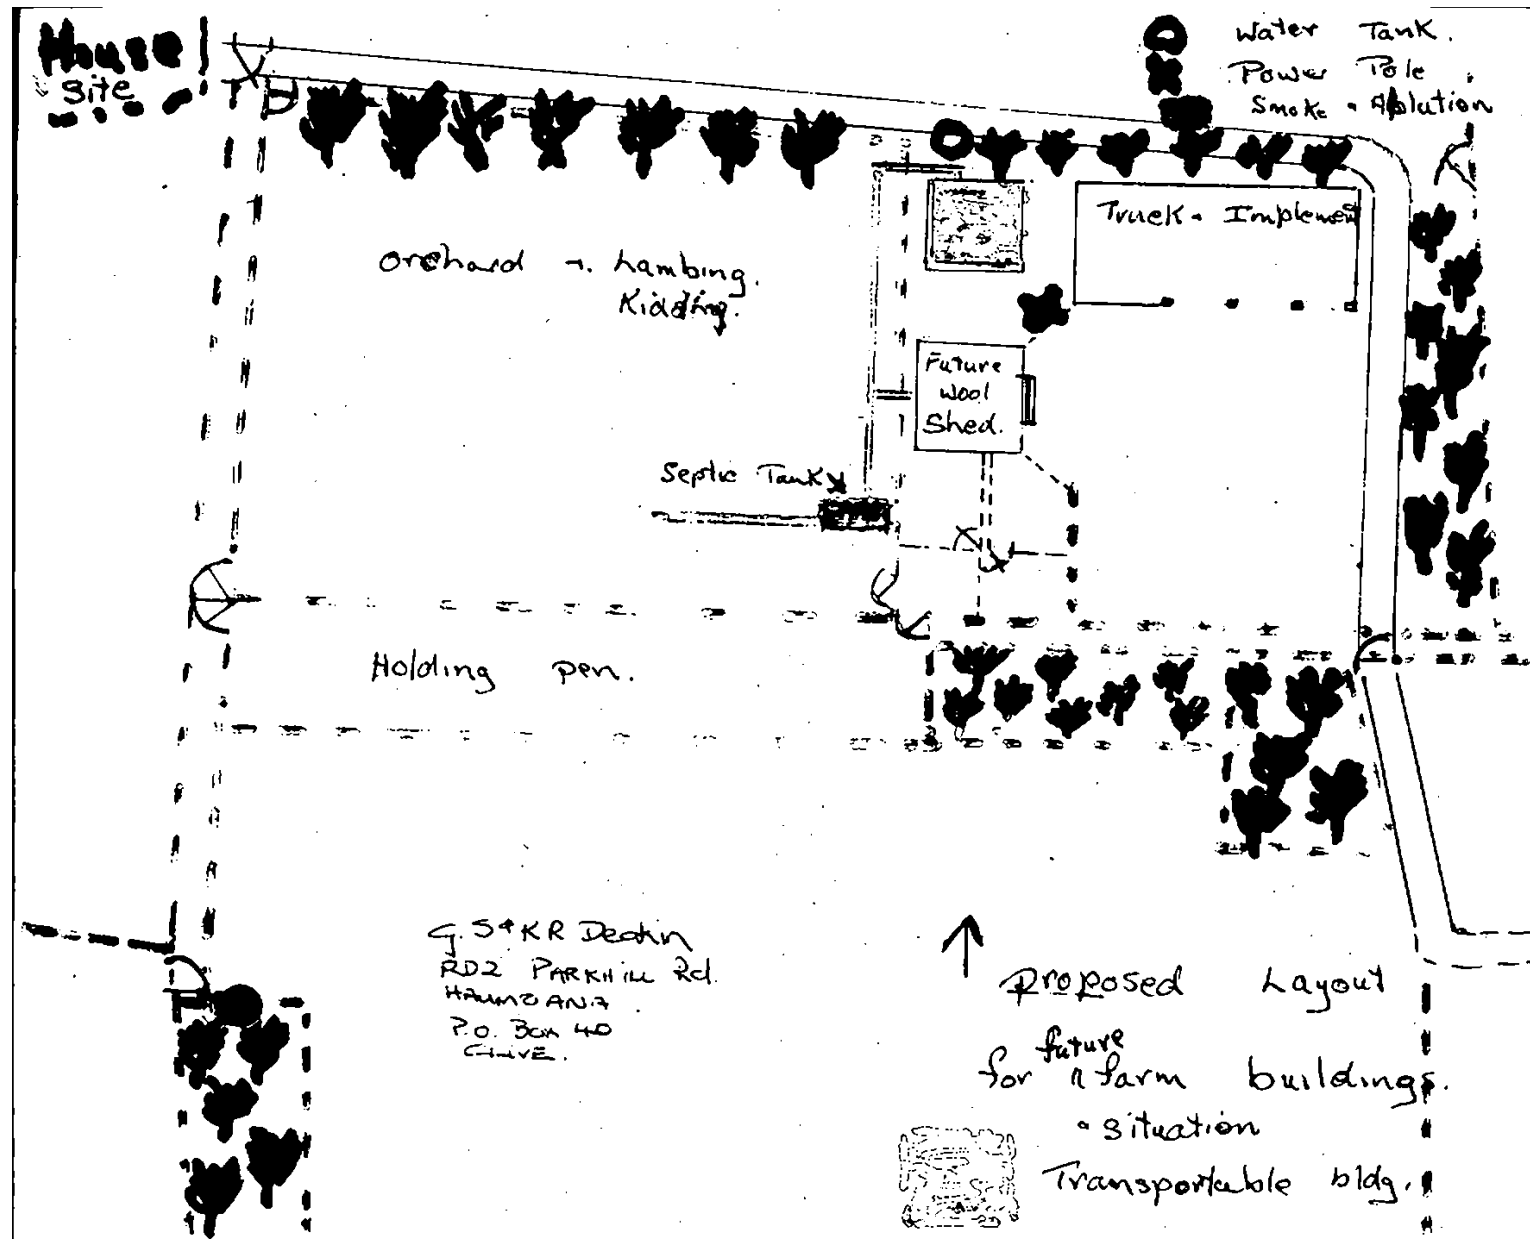 House
Site
Water Tank.
Power Pole
Smoke + Ablution
Truck + Implement
Orchard + Lambing.
Kidding.
Future
Wool
Shed.
Septic Tank
Holding pen.
G. S & KR Deakin
RD2 PARKHILL Rd.
HAUMOANA
P.O. Box 40
CLIVE.
Proposed Layout
future
for farm buildings.
+ situation
Transportable bldg.